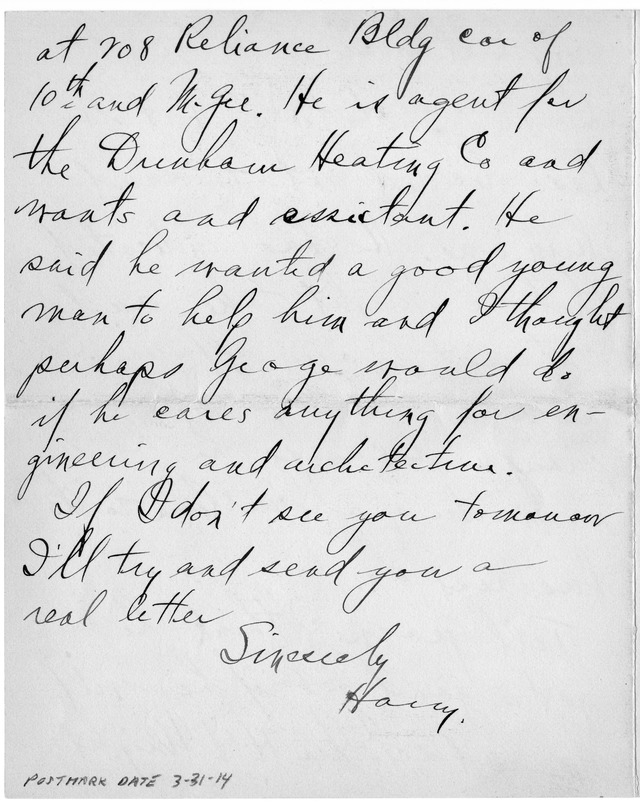 at 708 Reliance Bldg cor of
10th and McGee. He is agent for
the Dunham Heating Co and
wants and assistant. He
said he wanted a good young
man to help him and I thought
perhaps George would do
if he cares anything for en-
gineering and architecture.
If I don't see you tomorrow
I'll try and send you a
real letter
Sincerely
Harry.
POSTMARK DATE 3-31-14